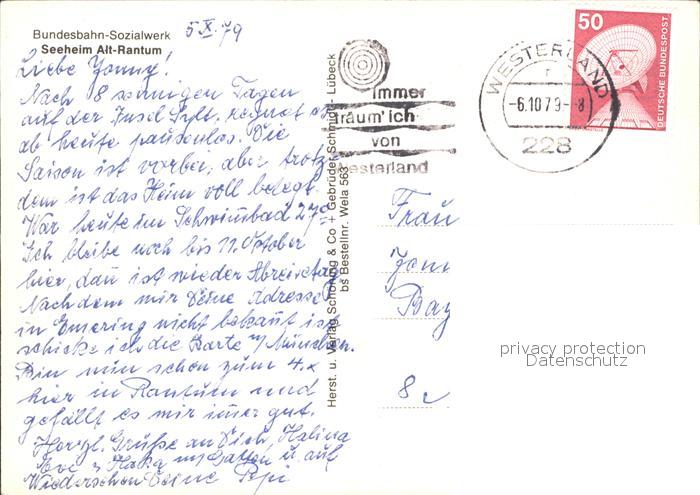 Bundesbahn-Sozialwerk
Seeheim Alt-Rantum
5 X. 79
Liebe Jonny!
Nach 18 sonnigen Tagen
auf der Insel Sylt, regnet es
ab heute pausenlos. Die
Saison ist vorbei, aber trotz
dem ist das Heim voll belegt.
War heute im Schwimbad 27°
Ich bleibe noch bis 11. Oktober
hier, dan ist wieder Abreisetag
Nachdem mir Deine Adresse
in Emering nicht bekant ist
schicke ich die Karte n/ München.
Bin nun schon zum 4. x
hier in Rantum und
gefällt es mir imer gut.
Herzl. Grüße an Dich, Halina
Eve u. Haka m/ Gatten u. auf
Wiedersehen Deine Pepi
Herst. u. Verlag Schöning & Co + Gebrüder Schmidt - Lübeck
bs Bestellnr. Wela 563
immer
träum' ich
von
Westerland
WESTERLAND
r
-6.10.79-8
228
50
DEUTSCHE BUNDESPOST
Frau
Bay
8
privacy protection
Datenschutz